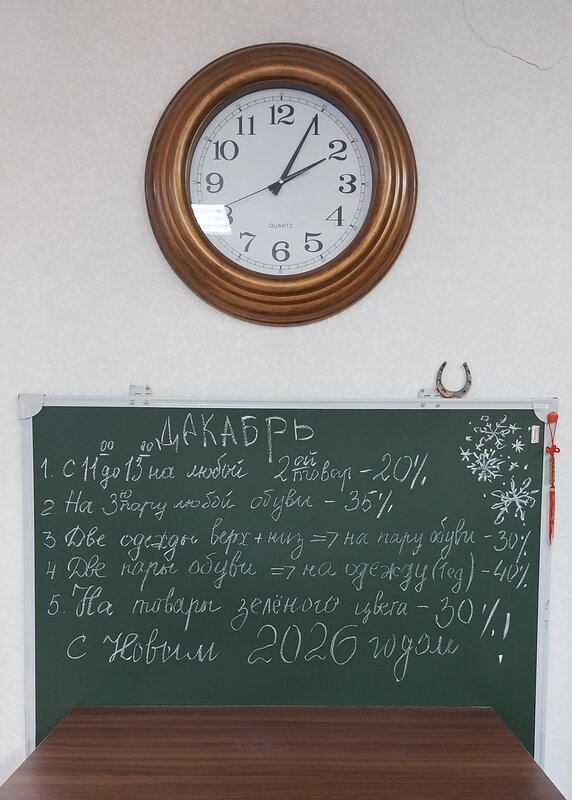 12
1
2
3
4
5
6
7
8
9
10
11
QUARTZ
ДЕКАБРЬ
1. С 11⁰⁰ до 13⁰⁰ на любой 2ой товар - 20%
2. На 3ю пару любой обуви - 35%
3 Две одежды верх + низ => на пару обуви - 30%
4 Две пары обуви => на одежду (1ед) - 40%
5. На товары зелёного цвета - 30%
С Новым 2026 годом!